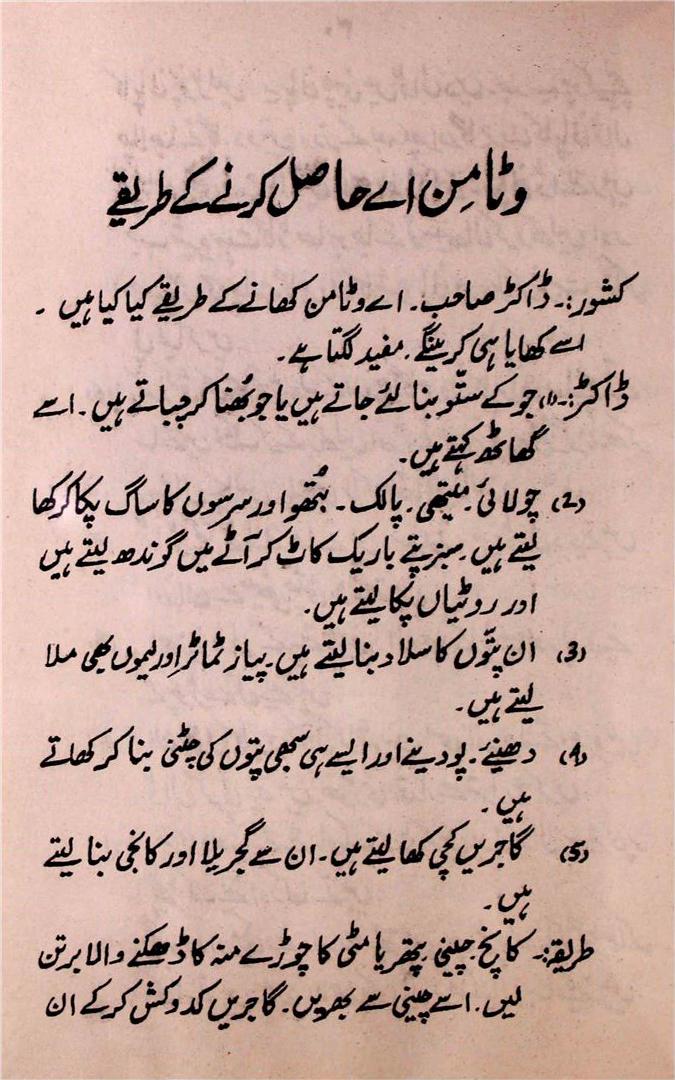 وٹامِن اے حاصل کرنے کے طریقے
کشور:۔ ڈاکٹر صاحب۔ اے وٹامن کھانے کے طریقے کیا کیا ہیں ۔
اسے کھایا ہی کرینگے۔ مفید لگتا ہے۔
ڈاکٹر:۔ (1) جو کے ستّو بنا لئے جاتے ہیں یا جو بُھنا کر چباتے ہیں۔ اسے
گھاٹھ کہتے ہیں۔
(2) چولائی۔ میتھی۔ پالک۔ بُتھو اور سرسوں کا ساگ پکا کر کھا
لیتے ہیں۔ سبز پتے باریک کاٹ کر آٹے میں گوندھ لیتے ہیں
اور روٹیاں پکا لیتے ہیں۔
(3) ان پتّوں کا سلاد بنا لیتے ہیں۔ پیاز ٹماٹر اور لیموں بھی ملا
لیتے ہیں۔
(4) دھنیے۔ پودینے اور ایسے ہی سبھی پتوں کی چٹنی بنا کر کھاتے
ہیں۔
(5) گاجریں کچی کھا لیتے ہیں۔ ان سے گجریلا اور کانجی بنا لیتے
ہیں۔
طریقہ:۔ کانچ۔ چینی۔ پتھر یا مٹی کا چوڑے منہ کا ڈھکنے والا برتن
لیں۔ اسے چینی سے بھریں۔ گاجریں کدوکش کر کے ان